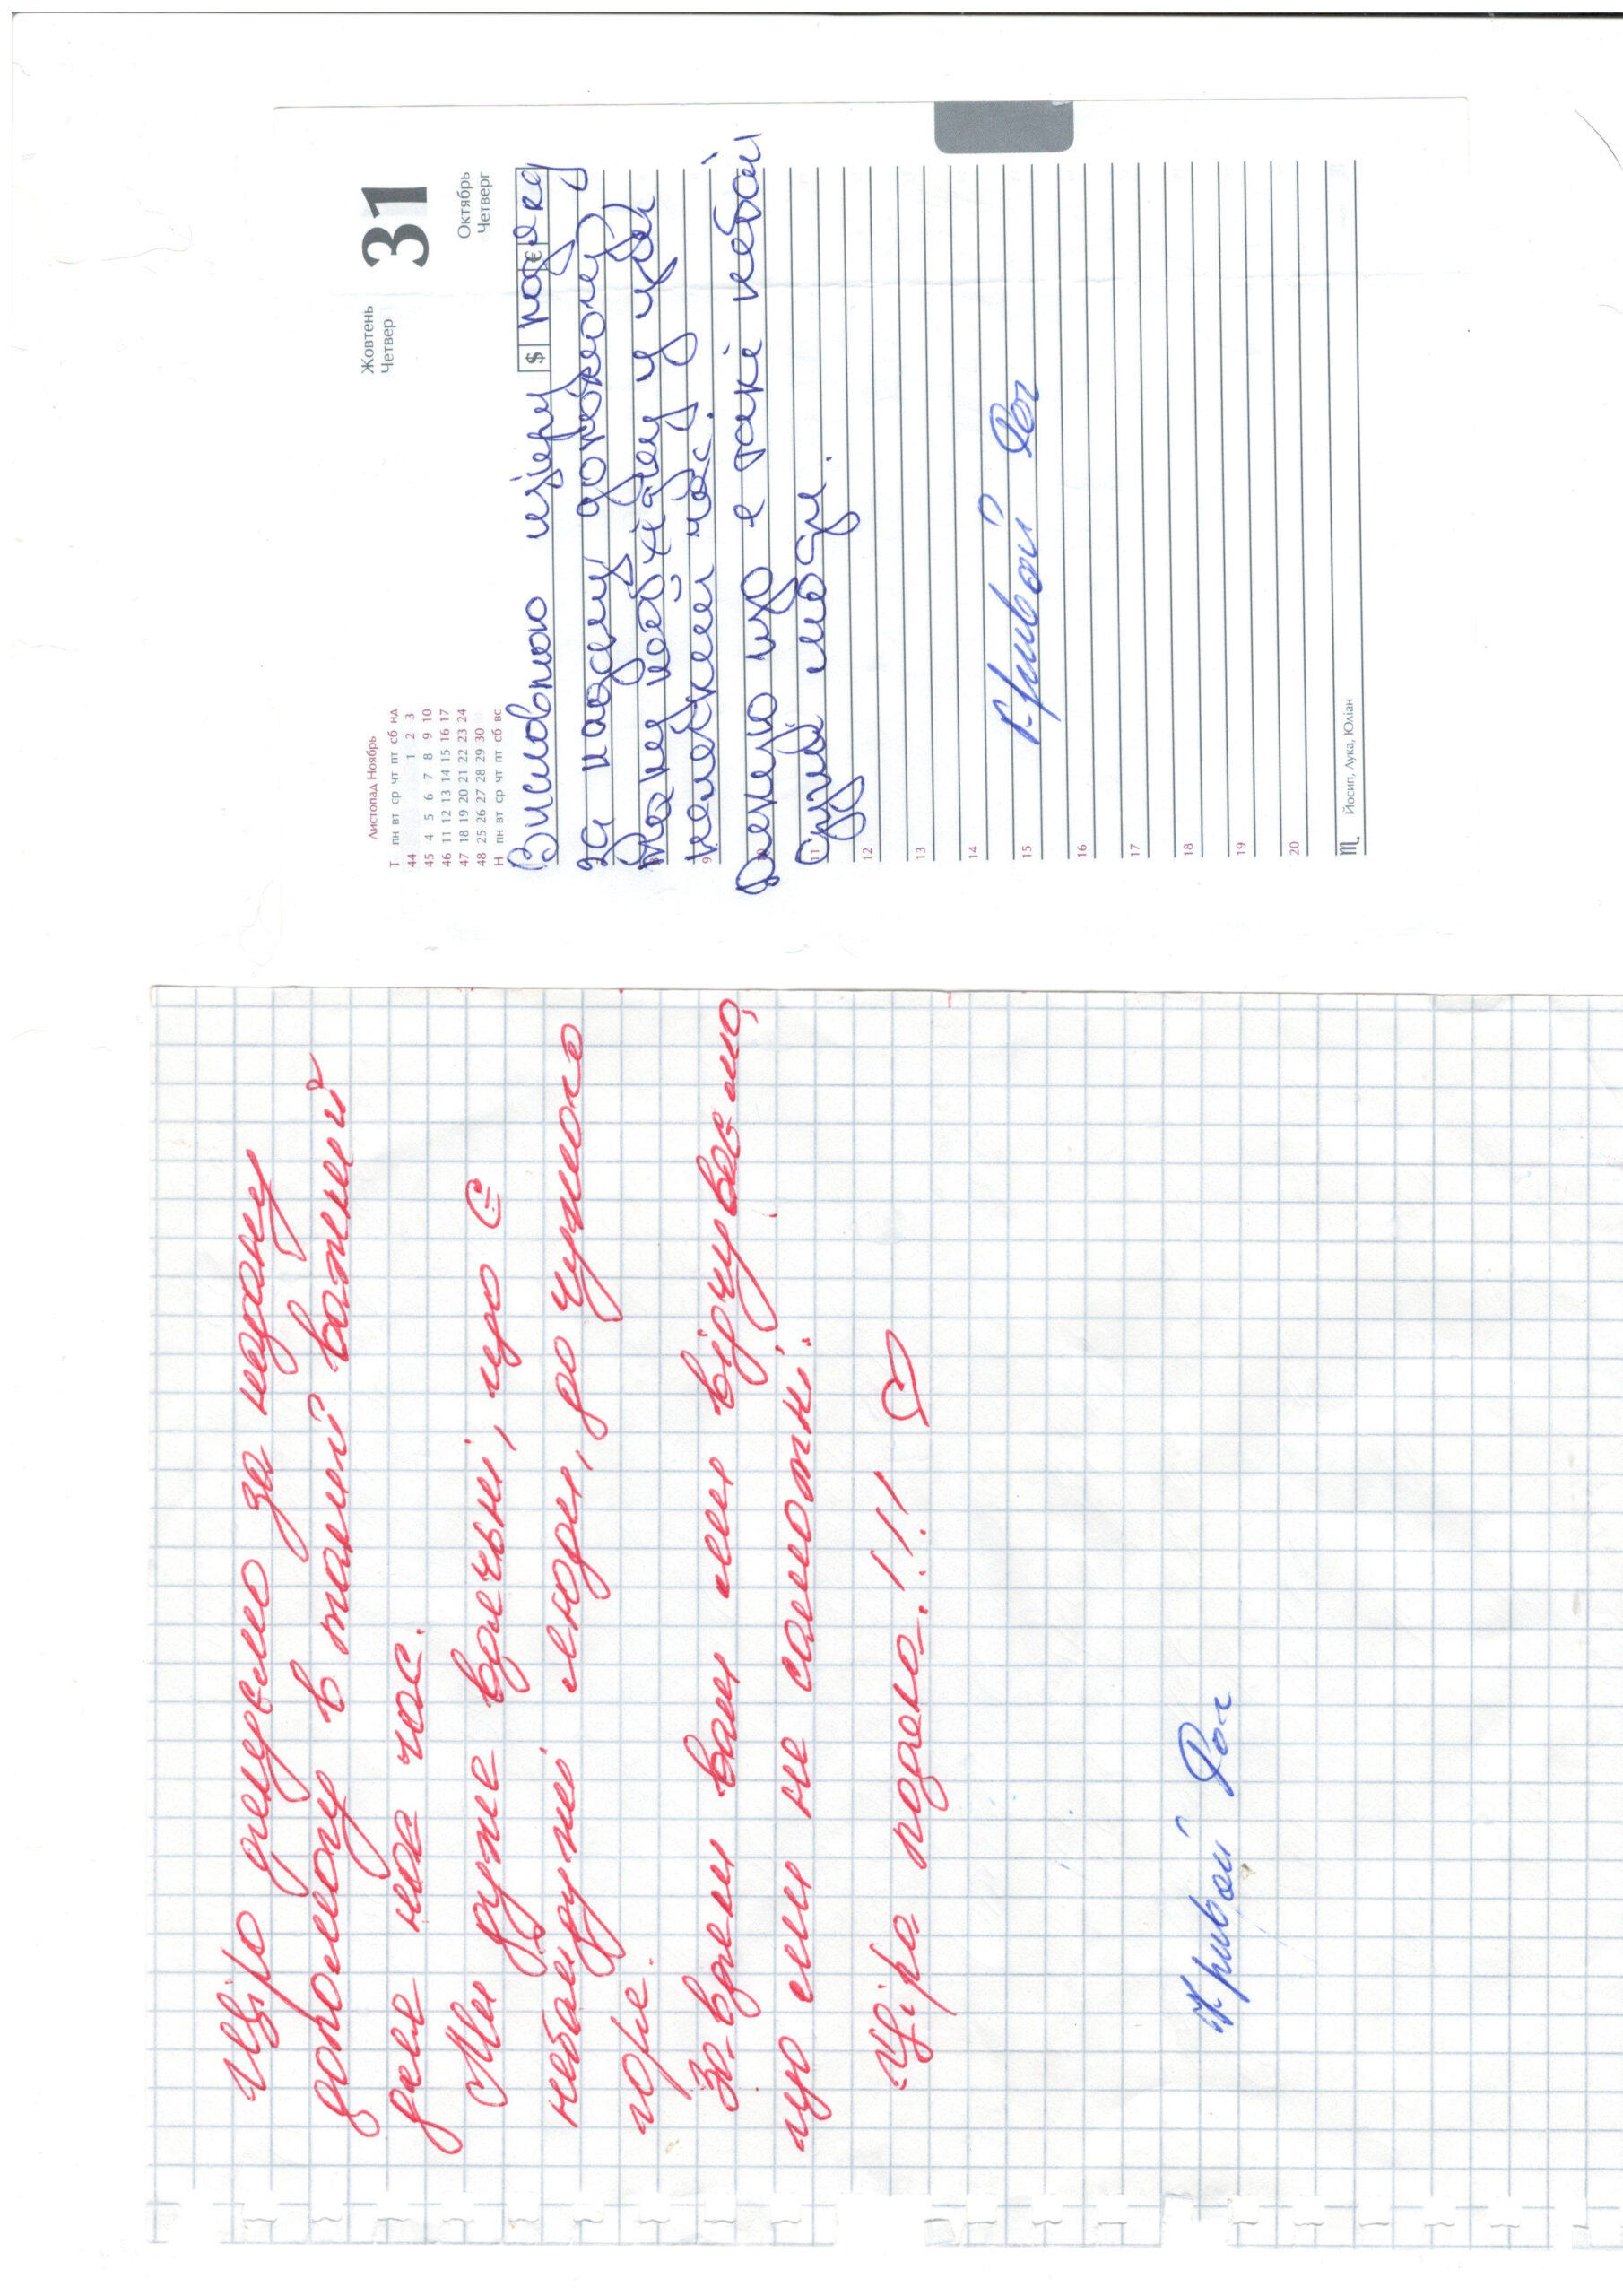 Жовтень
Четвер
31
Октябрь
Четверг
Листопад Ноябрь
Т пн вт ср чт пт сб нд
44 1 2 3
45 4 5 6 7 8 9 10
46 11 12 13 14 15 16 17
47 18 19 20 21 22 23 24
48 25 26 27 28 29 30
Н пн вт ср чт пт сб вс
$ €
Висловлюю щиру подяку
за надану допомогу
таку необхідну у цей
нелегкий час.
Дякую що є такі небай
дужі люди.
Кривой Рог
9
11
12
13
14
15
16
17
18
19
20
♏ Йосип, Лука, Юліан
Щіро дякуємо за надану
допомогу в такий важкий
для нас час.
Ми дуже вдячні, що Є
небайдужі люди, до чужого
горе.
Завдяки вам ми відчуваємо,
що ми не самотні.
Щіра подяка!!!
Кривой Рог